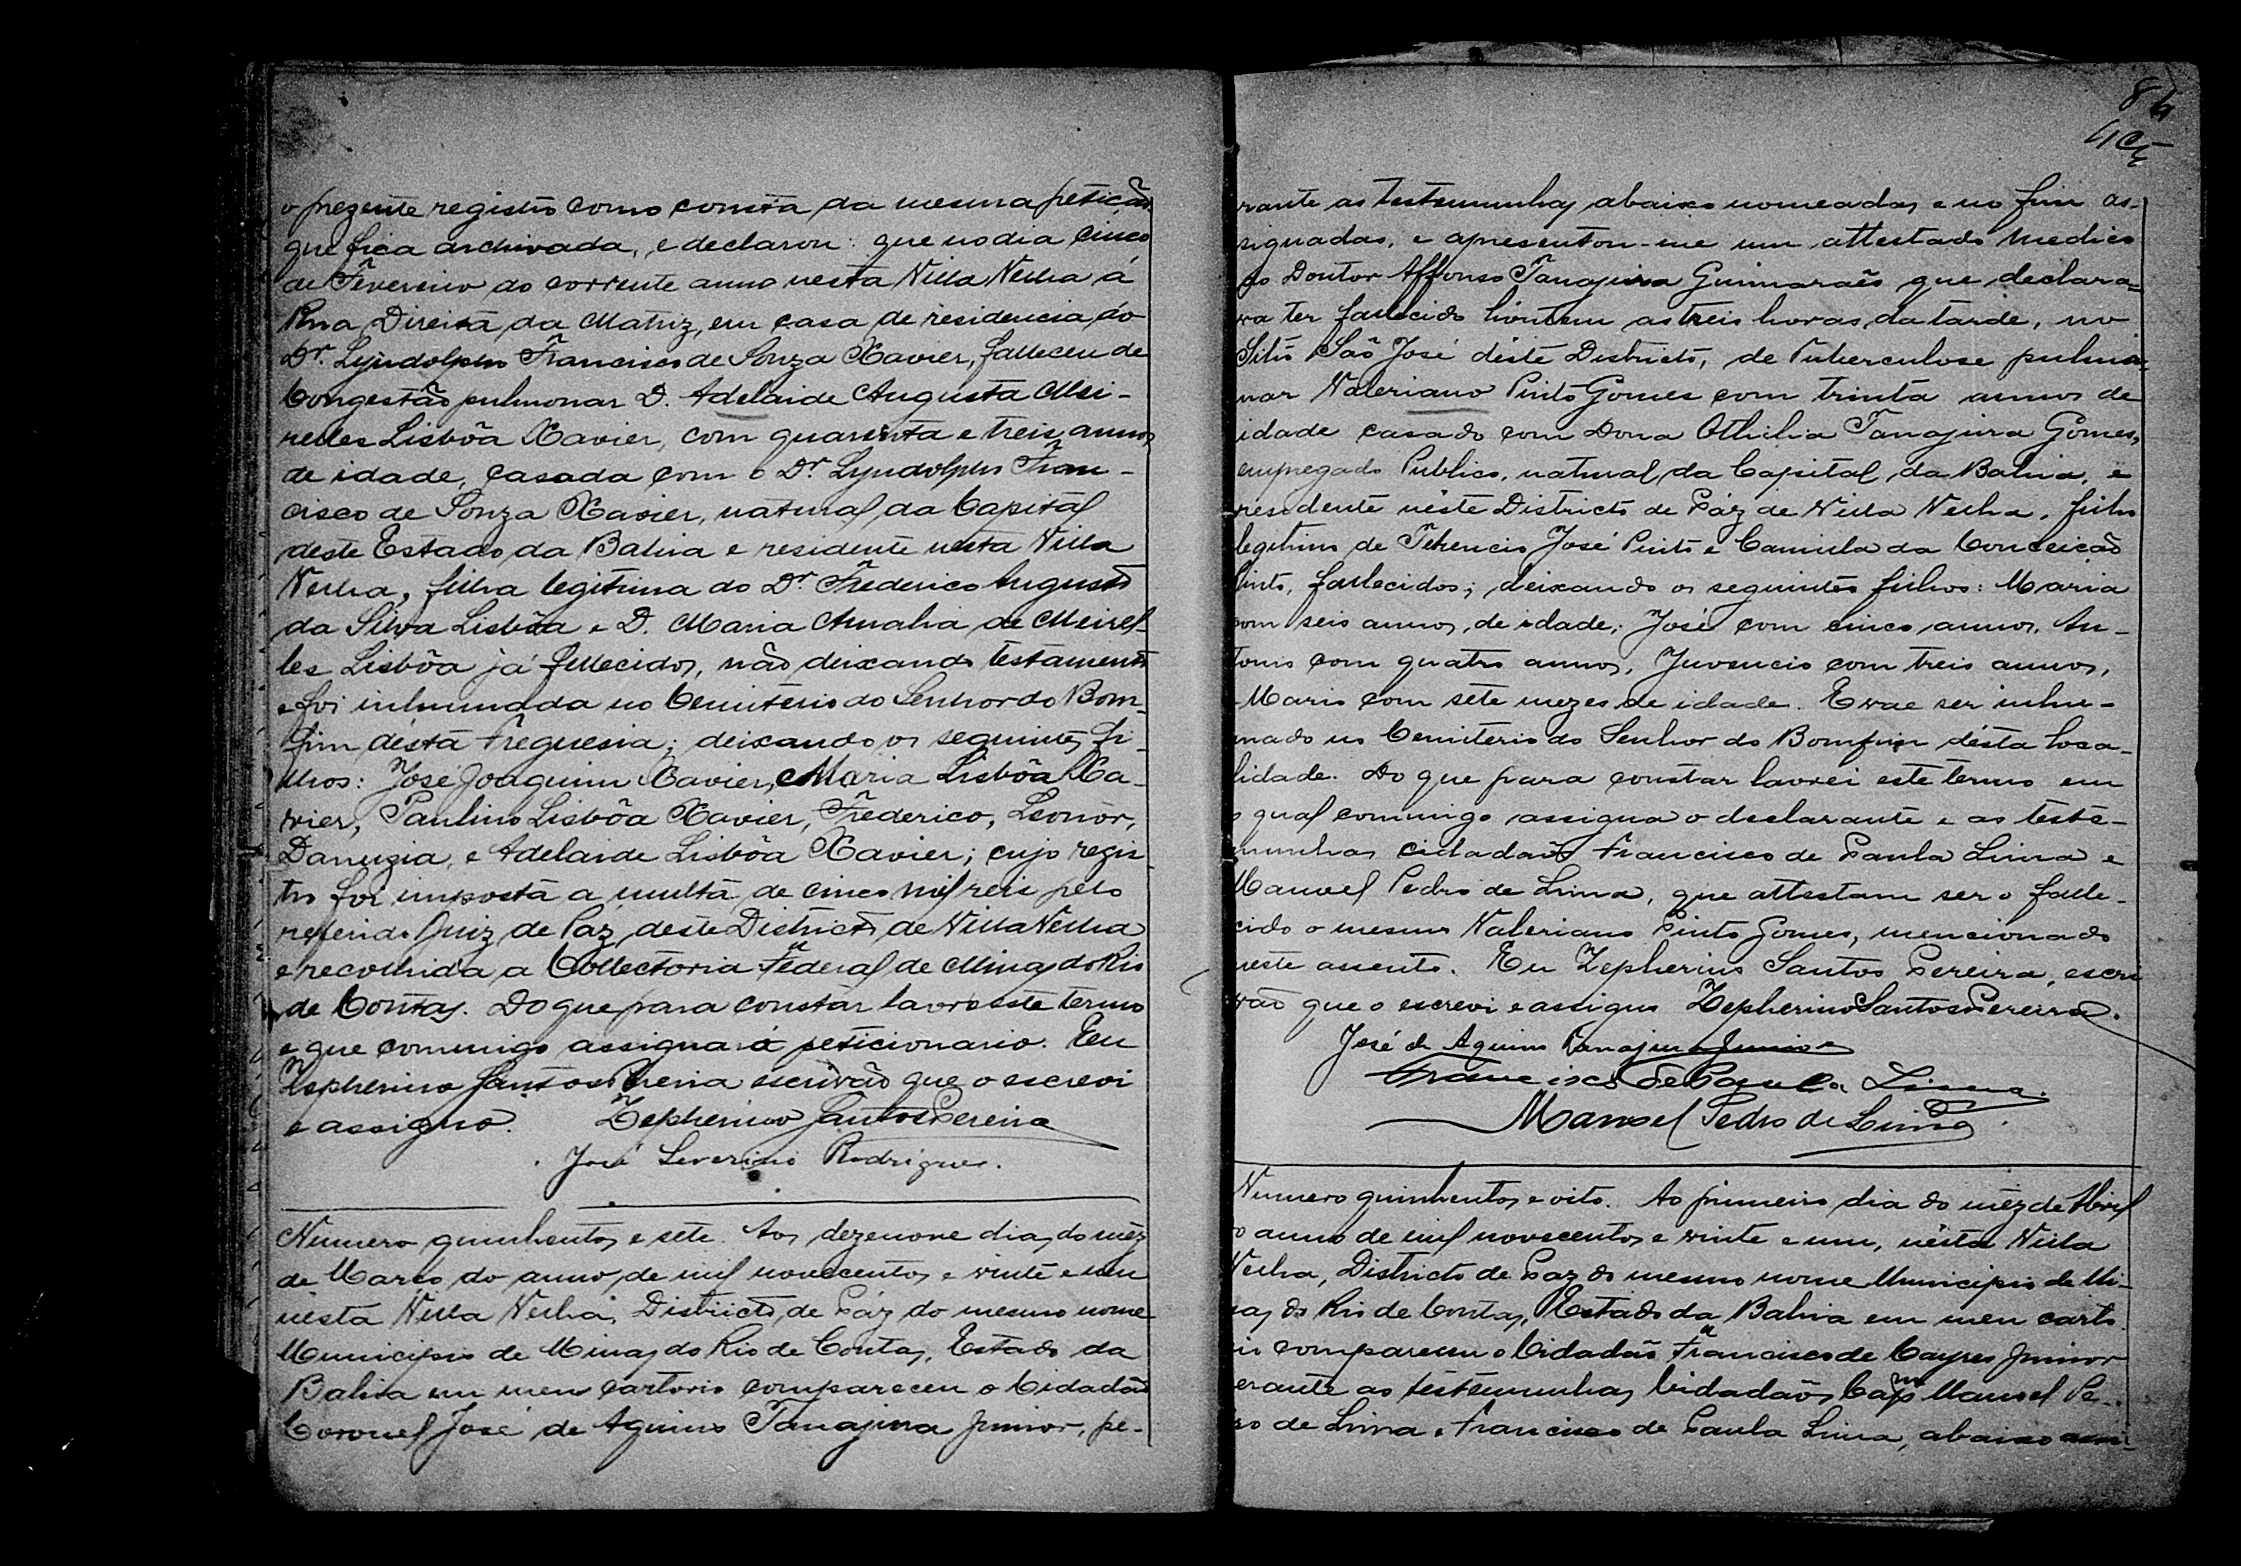 o prezente registro como consta da mesma petição
que fica archivada, e declarou: que no dia cinco
de Fevereiro do corrente anno nesta Villa Velha á
Rua Direita da Matriz, em casa de residencia do
Dr. Lyndolpho Francisco de Souza Xavier, falleceu de
Congestão pulmonar D. Adelaide Augusta Mei-
relles Lisbôa Xavier, com quarenta e treis annos
de idade, casada com o Dr. Lyndolpho Fran-
cisco de Souza Xavier, natural da Capital
deste Estado da Bahia e residente nesta Villa
Velha, filha legitima do Dr. Frederico Augusto
da Silva Lisbôa e D. Maria Amalia de Meirel-
les Lisbôa já fallecidos, não deixando testamento
e foi inhumada no Cemiterio do Senhor do Bom-
fim désta freguesia; deixando os seguintes fi-
lhos: José Joaquim Xavier, Maria Lisbôa Xa-
vier, Paulino Lisbôa Xavier, Frederico, Leonôr,
Danuzia, e Adelaide Lisbôa Xavier; cujo regis-
tro foi imposta a multa de cinco mil reis pelo
referido Juiz de Paz, deste Districto de Villa Velha
e recolhida a Collectoria Federal de Minas do Rio
de Contas. Do que para constar lavro este termo
e que commigo assignará peticionario. Eu
Zepherino Santos Pereira escrivão que o escrevi
e assigno. Zepherino Santos Pereira
José Severino Rodrigues.
Numero quinhentos e sete. Aos dezenove dias do mêz
de Março do anno de mil novecentos e vinte e um
nésta Villa Velha, Districto de Páz do mesmo nome
Municipio de Minas do Rio de Contas, Estado da
Bahia em meu cartorio compareceu o Cidadão
Coronel José de Aquino Tanajura Junior, pe-
84
rante as testemunhas abaixo nomeadas e no fim as-
signadas, e apresentou-me um attestado medico
do Doutor Affonso Tanajura Guimarães que declara-
va ter fallecido hontem as treis horas da tarde, no
Sitio São José déste Districto, de Tuberculose pulmo-
nar Valeriano Pinto Gomes com trinta annos de
idade casado com Dona Othilia Tanajura Gomes,
empregado Publico, natural da Capital da Bahia, e
residente néste Districto de Páz de Villa Velha, filho
legitimo de Terencio José Pinto e Camilla da Conceição
Pinto, fallecidos; deixando os seguintes filhos: Maria
com seis annos, de idade; José com cinco annos, An-
tonio com quatro annos, Juvencio com treis annos,
Mario com séte mezes de idade. E vae ser inhu-
mado no Cemiterio do Senhor do Bomfim désta loca-
lidade. Do que para constar lavrei este termo em
o qual commigo assigna o declarante e as teste-
munhas cidadãos Francisco de Paula Lima e
Manoel Pedro de Lima, que attestam ser o falle-
cido o mesmo Valeriano Pinto Gomes, mencionado
neste assento. Eu Zepherino Santos Pereira, escri
vão que o escrevi e assigno Zepherino Santos Pereira.
José de Aquino Tanajura Junior
Francisco de Paula Lima.
Manoel Pedro de Lima.
Numero quinhentos e oito. Ao primeiro dia do mêz de Abril
do anno de mil novecentos e vinte e um, nésta Villa
Velha, Districto de Paz do mesmo nome Municipio de Mi-
nas do Rio de Contas, Estado da Bahia em meu carto
rio compareceu o Cidadão Francisco de Cayres Junior
perante as testemunhas Cidadãos Capm Manoel Pe-
dro de Lima e Francisco de Paula Lima, abaixo assi-